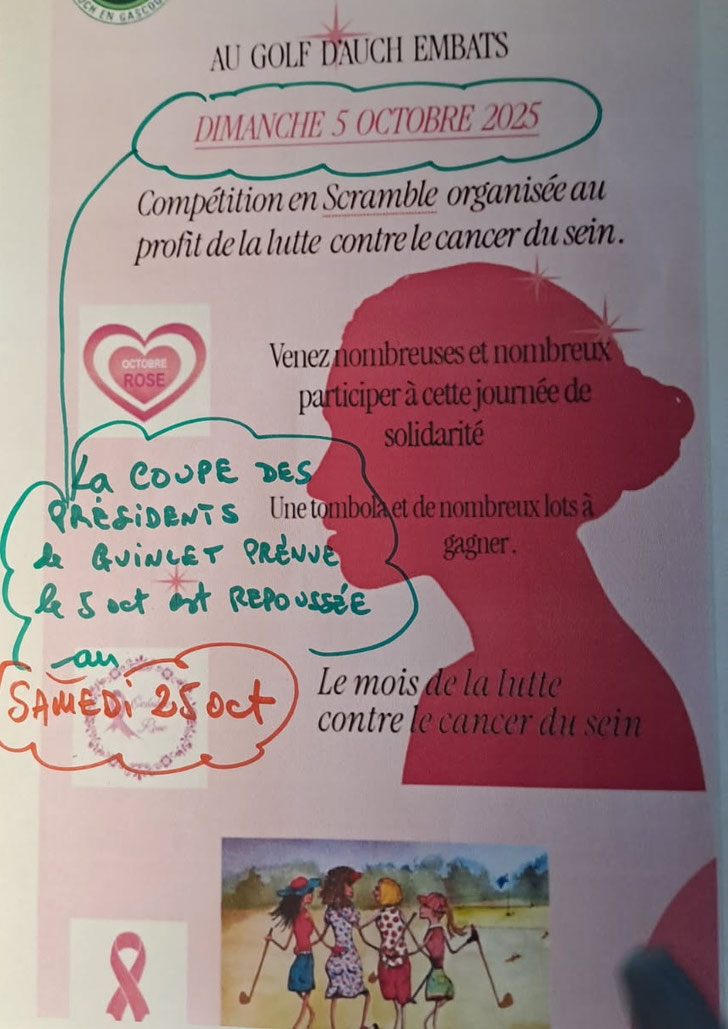 UCH EN GASCOG
AU GOLF D'AUCH EMBATS
DIMANCHE 5 OCTOBRE 2025
Compétition en Scramble organisée au
profit de la lutte contre le cancer du sein.
OCTOBRE
ROSE
Venez nombreuses et nombreux
participer à cette journée de
solidarité
Une tombola et de nombreux lots à
gagner.
La COUPE DES
PRÉSIDENTS
de GUINLET PRÉVUE
le 5 oct est REPOUSSÉE
au
SAMEDI 25 oct
Octobre
Rose
Le mois de la lutte
contre le cancer du sein